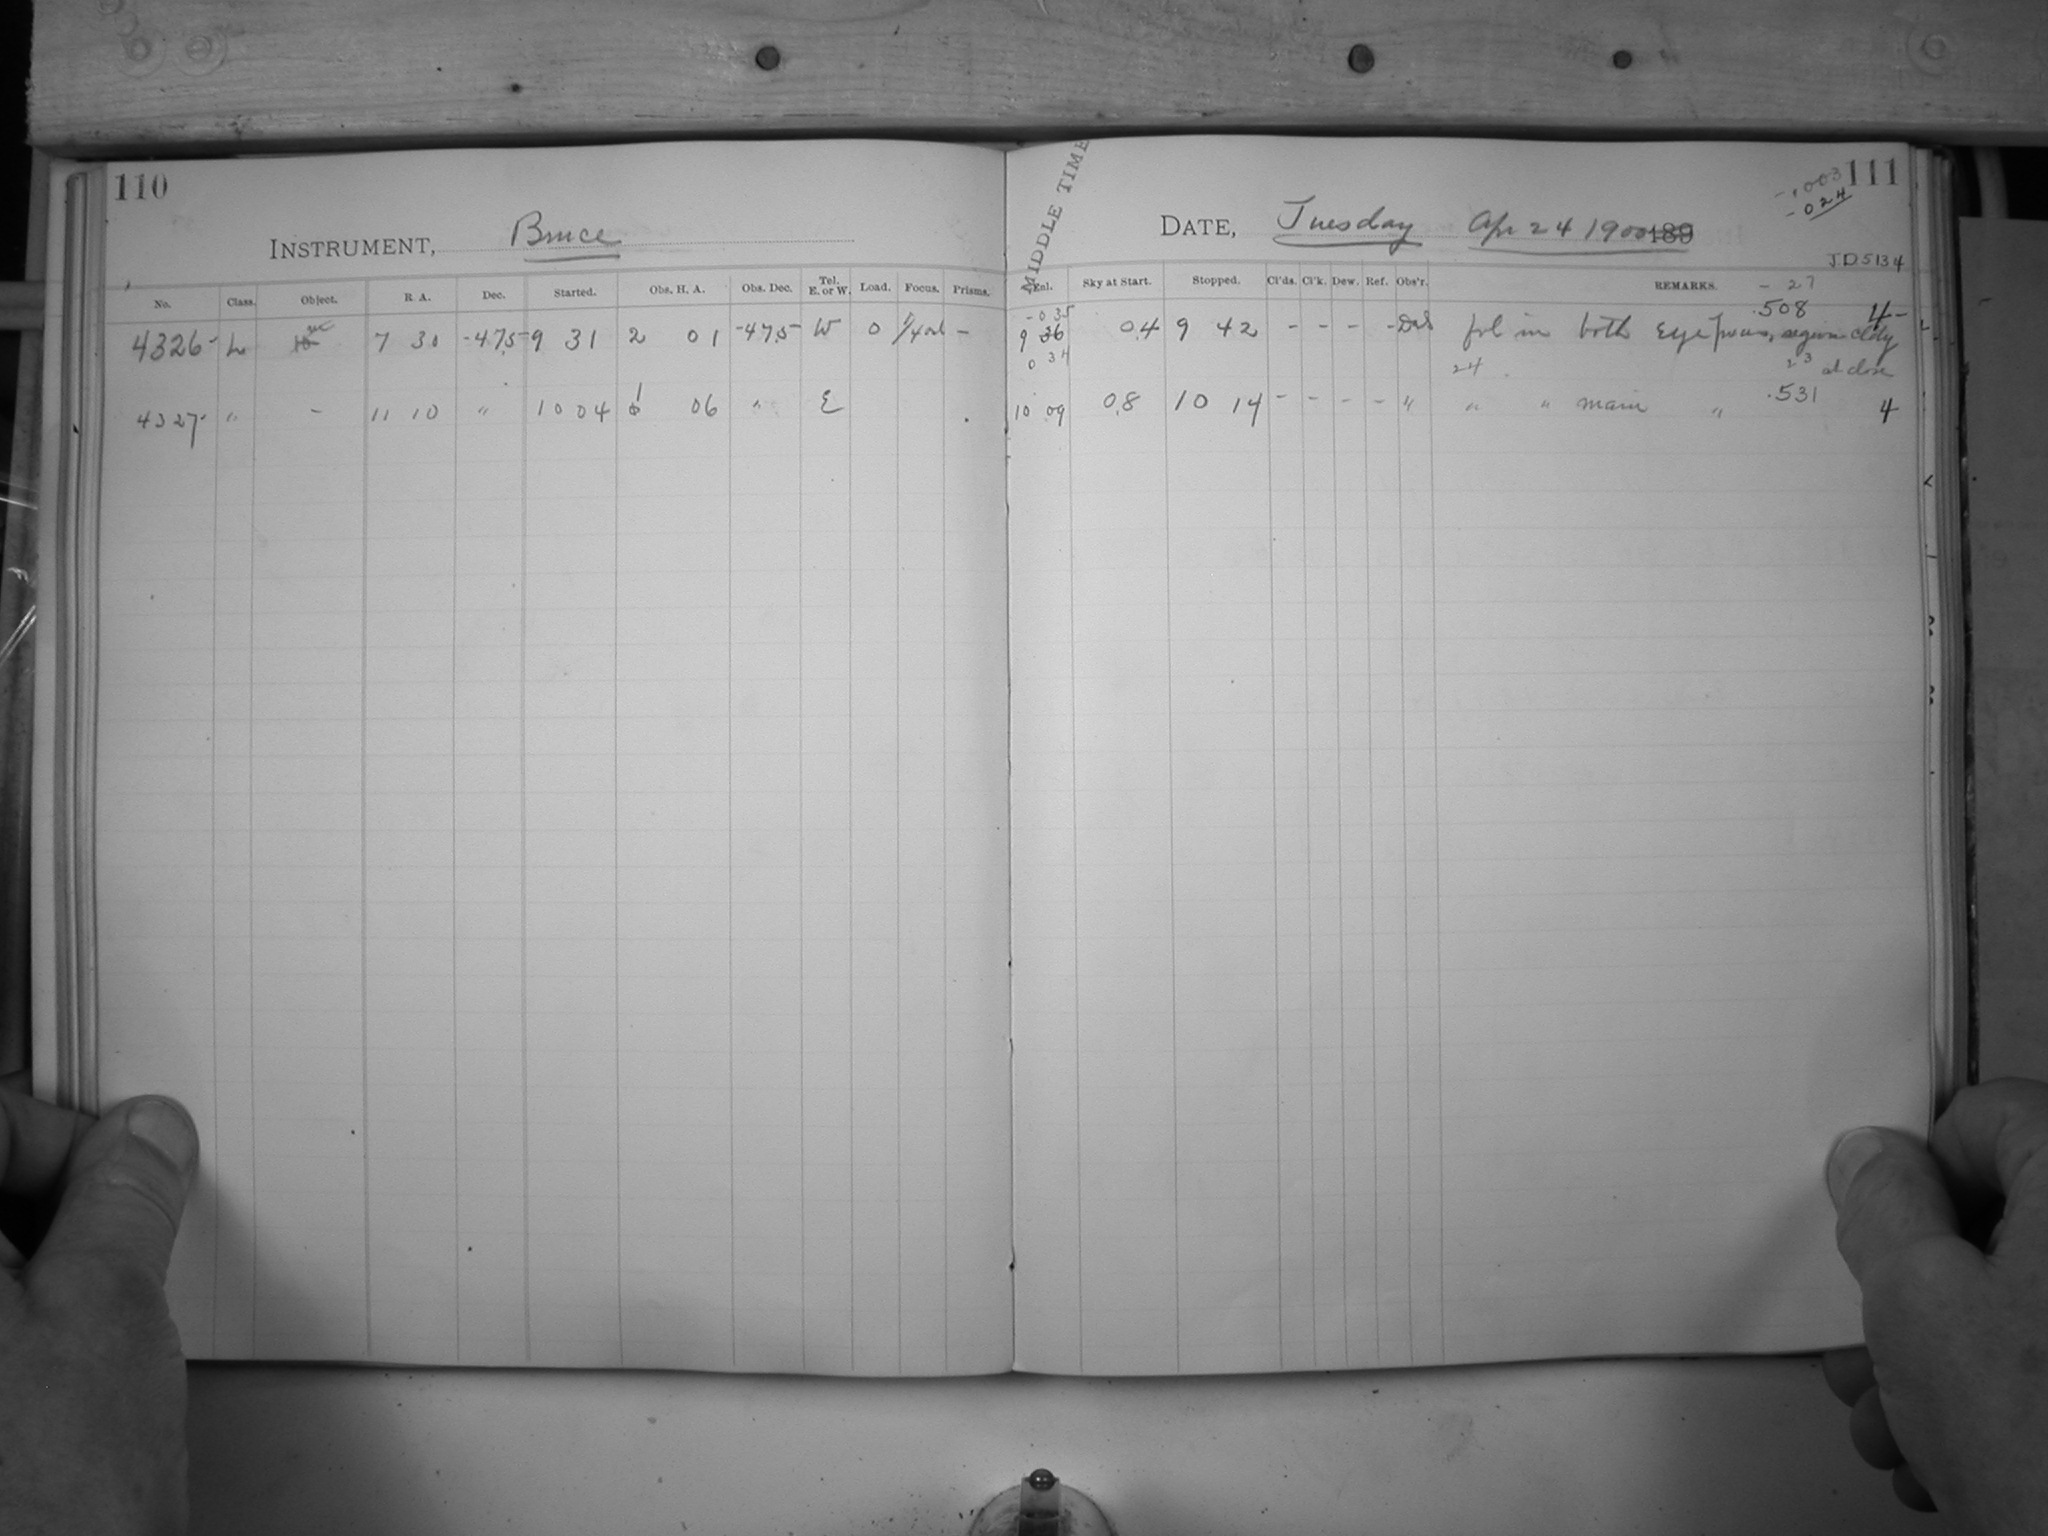 110
INSTRUMENT, Bruce
No. Class. Object. R. A. Dec. Started. Obs. H. A. Obs. Dec. Tel. E. or W. Load. Focus. Prisms.
4326 L 7 30 -47.5 9 31 2 01 -47.5 W 0 –
4327 " – 11 10 " 10 04 1 06 " E
MIDDLE TIME
-.003 111
-024
DATE, Tuesday Apr 24 1900 189
J.D. 5134
Enl. Sky at Start. Stopped. Cl'ds. Cl'k. Dew. Ref. Obs'r. REMARKS. - 27
-035 .508 4
9 36 04 9 42 - - - - fol in both Eye region cldy
0 34 24 23 at close
10 09 0.8 10 14 - - - - " " " main " .531 4